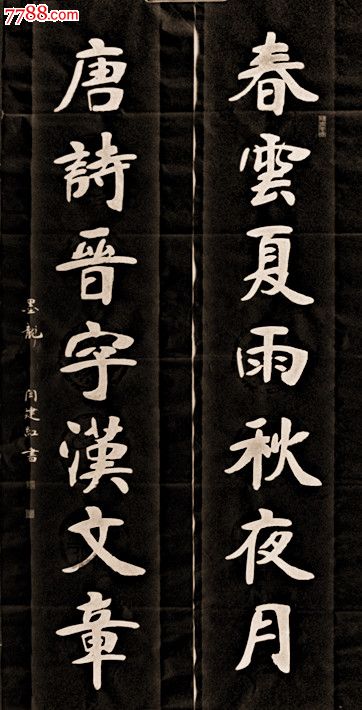 7788.com
春雲夏雨秋夜月
唐詩晉字漢文章
墨龍 闫建红書